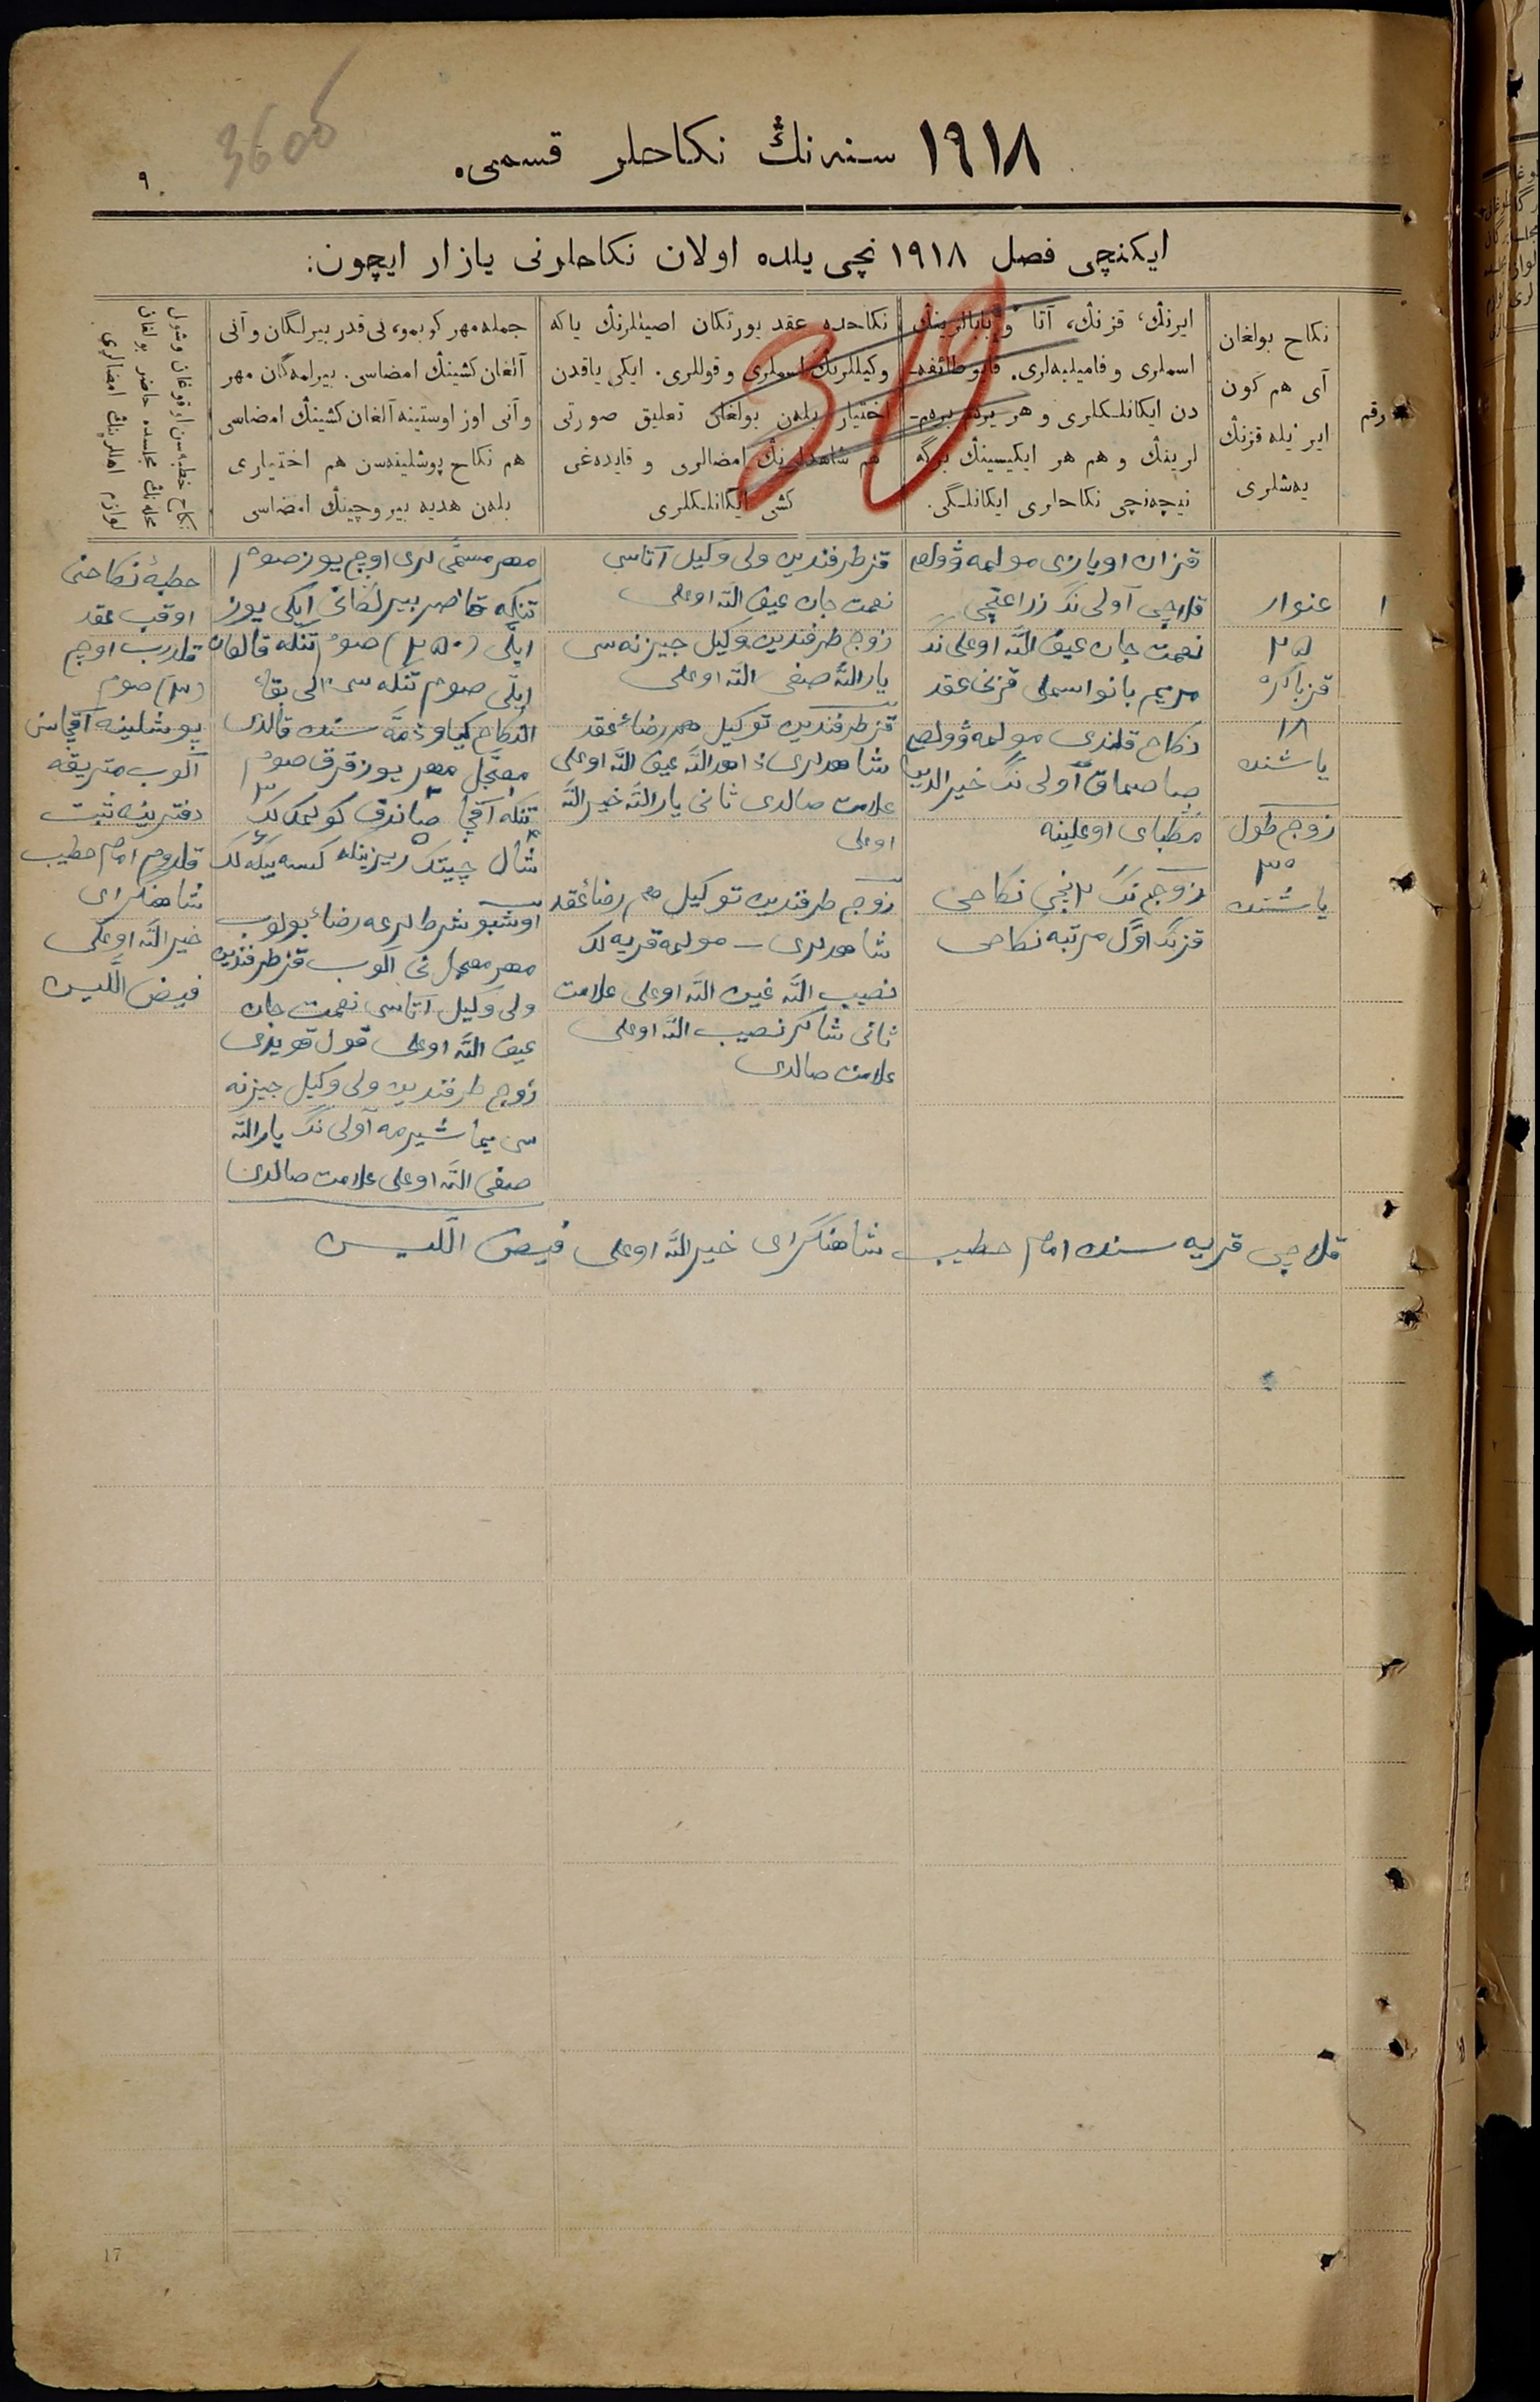 3600
١٩١٨ سنه نڭ نكاحلر قسمی.
٩
ایكنچی فصل ١٩١٨ نچی یلده اولان نكاحلرنی یازار ایچون:
رقم
نكاح بولغان
آی هم كون
ایر ئیله قزنڭ
یه‌شلری
ایرنڭ، قزنڭ، آتا و بابالرینڭ
اسملری و فامیلیه‌لری. قایو طائفه‌-
دن ایكانلكلری و هر برگه برهم-
لرینڭ و هم هر ایكیسینڭ برگه
نیچه‌نچی نكاحلری ایكانلگی.
نكاحده عقد یورتكان اصیللرنڭ یاكه
وكیللرنڭ اسملری و قوللری. ایكی یاقدن
اختیار بلەن بولغان تعلیق صورتی
هم شاهدلرنڭ امضالری و قایده‌غی
كشی ایكانلكلری
جمله مهر كوبمو، نی قدر بیرلگان و آنی
آلغان كشینڭ امضاسی. بیرلمه‌گان مهر
و آنی اوز اوستینه آلغان كشینڭ امضاسی
هم نكاح پوشلینه‌سن هم اختیاری
بلەن هدیه بیروچینڭ امضاسی
نكاح خطبه‌سن اوقوغان وشول
محله‌نڭ مجلسده حاضر بولغان
لوازم اهللرینڭ امضالری
39
١
غنوار
٢٥
قز باكره
١٨
یاشنده
زوج طول
٣٥
یاشنده
قزان اویازی مولمه ۋولص
قلاچی آولی نڭ زراعتچی
نعمت جان عیض الله اوغلی نڭ
مریم بانو اسملی قزنی عقد
نكاح قلندی مولمه ۋولص
صماق آولی نڭ خیر الدین
اوغلینه
زوج نڭ ٢ نچی نكاحی
قزنڭ اوّل مرتبه نكاحی
قز طرفندین ولی وكیل آتاسی
نعمت جان عیض الله اوغلی
زوج طرفندین وكیل جیزنه‌سی
یار الله صفی الله اوغلی
قز طرفندین توكیل هم رضاء عقد
شاهدلری: احد الله عیض الله اوغلی
علامت صالدی ثانی یار الله خیر الله
اوغلی
زوج طرفندین توكیل هم رضاء عقد
شاهدلری - مولمه قریه لك
نصیب الله غین الله اوغلی علامت
ثانی شاكر نصیب الله اوغلی
علامت صالدی
مهر مسمّی لری اوچ یوز صوم
تنكه حاضر بیرلكانی ایكی یوز
ایلی (٢٥٠) صوم تنكه قالغان
ایلی صوم تنكه سی الی بقاء
النكاح كیاو ذمّه سنده قالدی
معجّل مهر یوز قرق صوم
تنكه آقچا صاندق كولمك لك
شال چیتك ریزینكه
اوشبو شرطلرغه رضاء بولوب
مهر معجل نی آلوب قز طرفندین
ولی وكیل آتاسی نعمت جان
عیض الله اوغلی قول قویدی
زوج طرفندین ولی وكیل جیزنه
سی یما شیرمه آولی نڭ یار الله
صفی الله اوغلی علامت صالدی
خطبۀ نكاحنی
اوقب عقد
قلدرب اوچ
(٣) صوم
پوشلینه آقچاسن
آلوب متریقه
دفترینه ثبت
قلدوم امام خطیب
شاهنگرای
خیر الله اوغلی
فیض اللین
قلاچی قریه سنده امام خطیب شاهنگرای خیر الله اوغلی فیض اللین
17